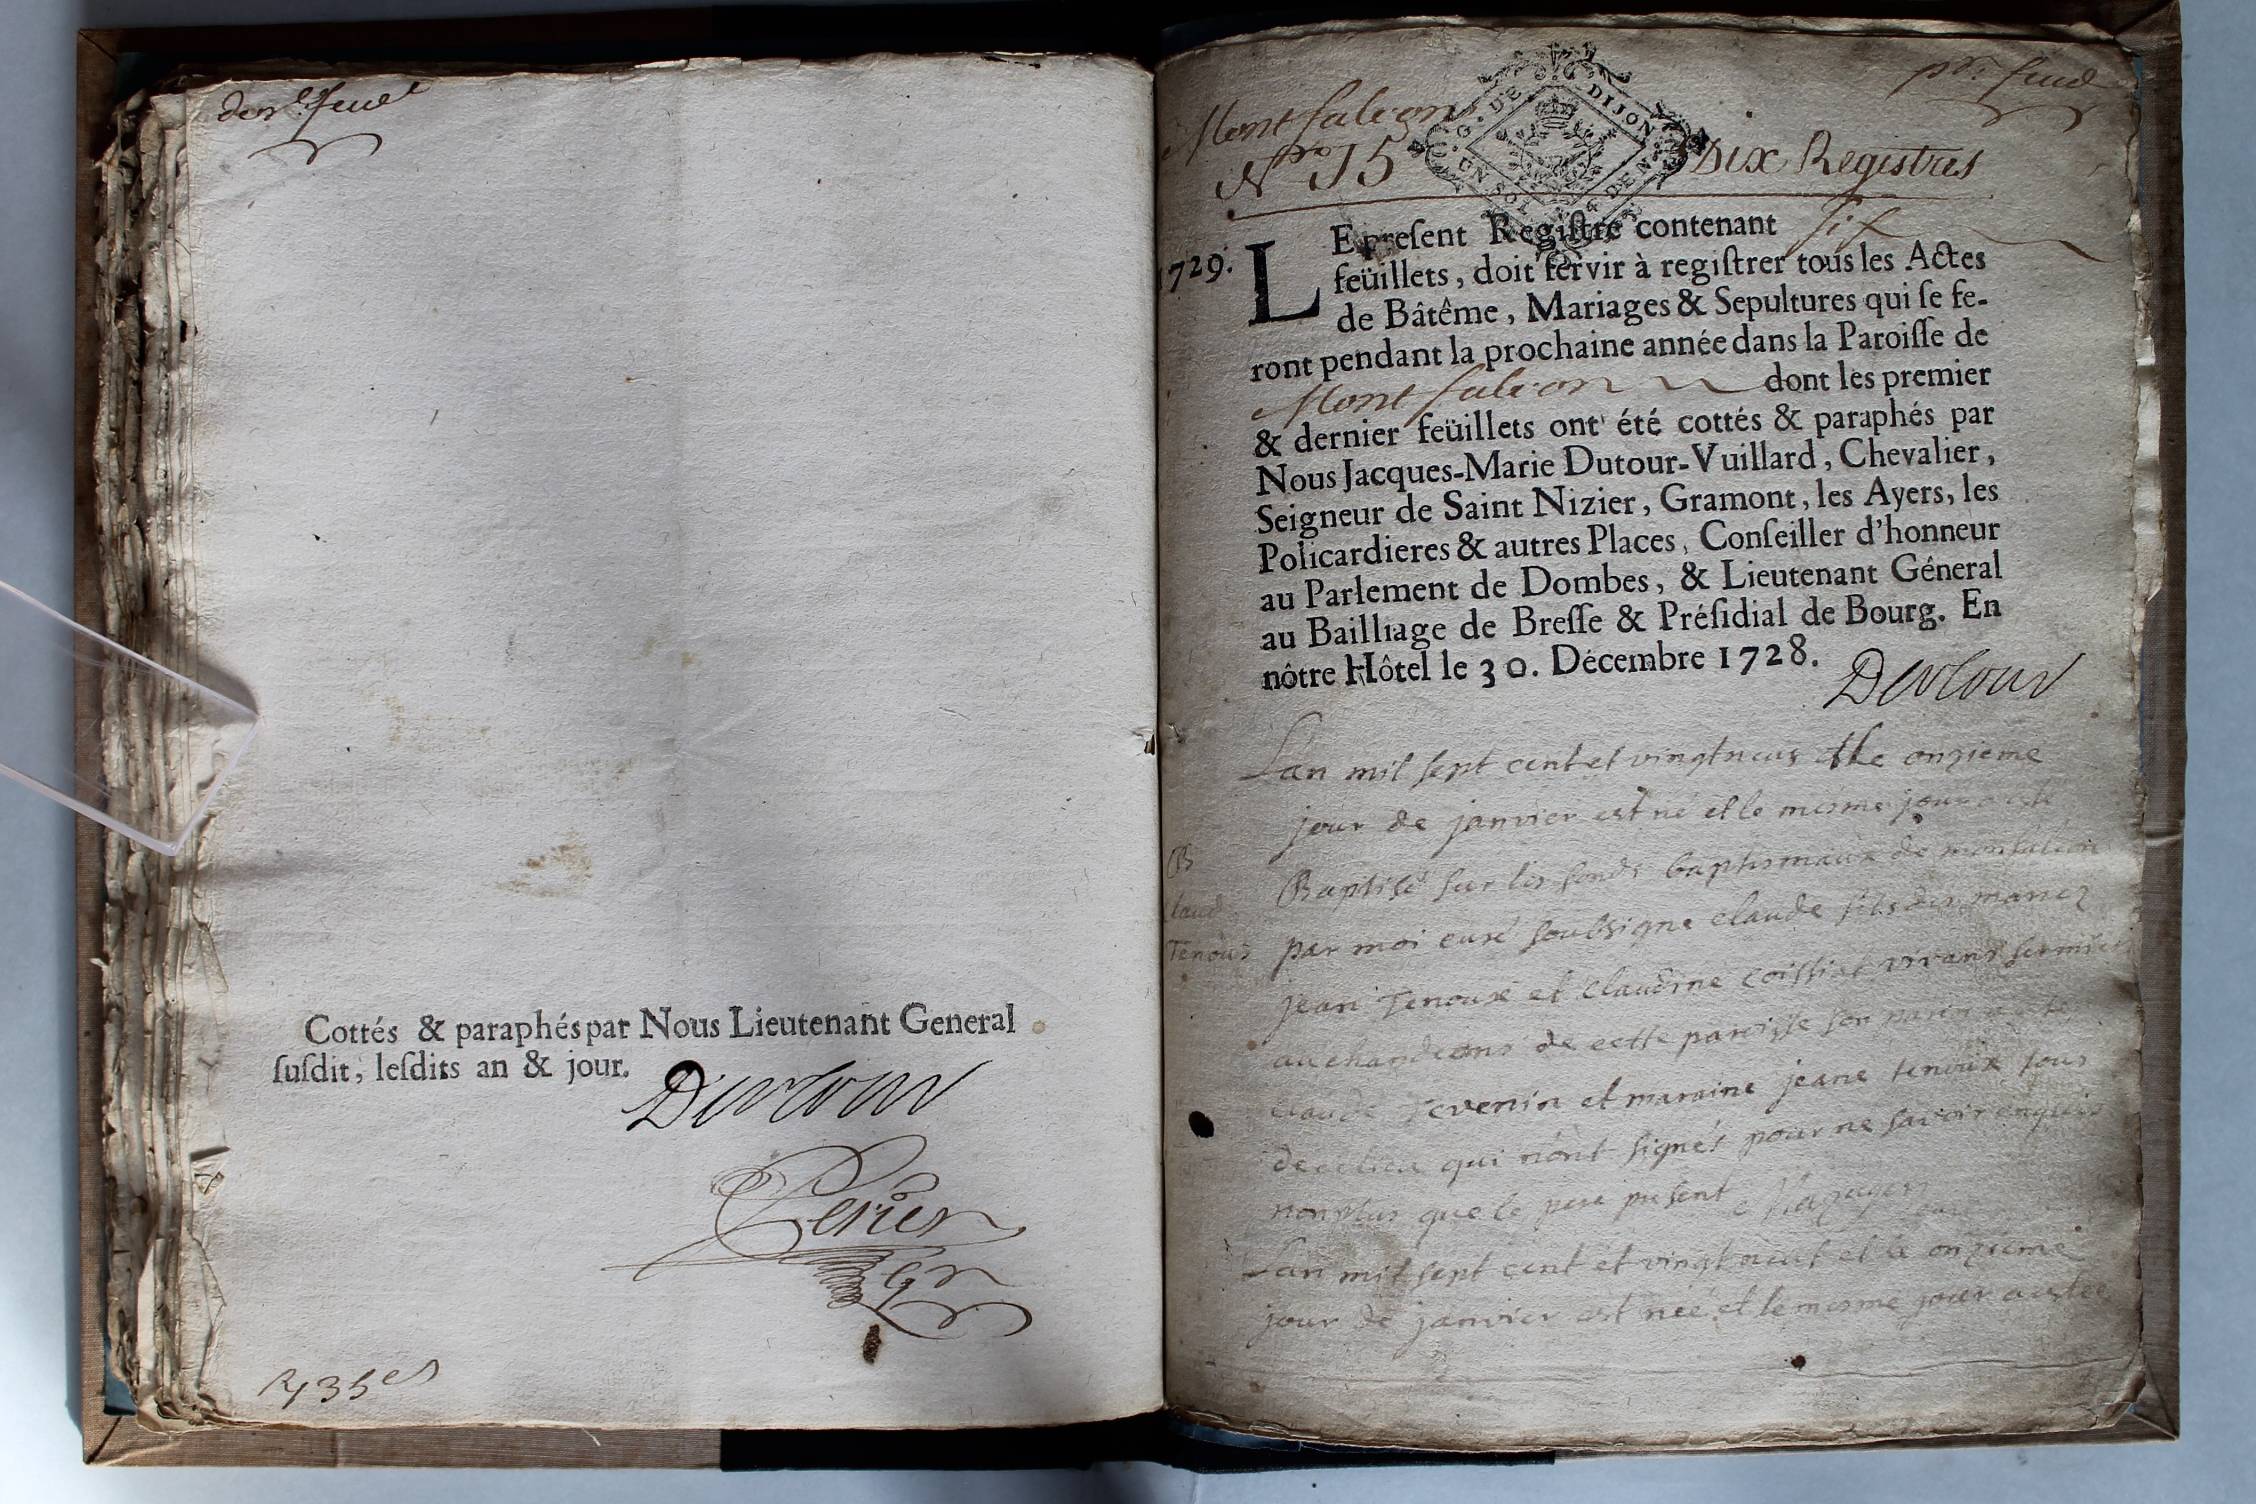 der.r feuel
Cottés & paraphés par Nous Lieutenant General
ſuſdit, leſdits an & jour.
Perier
Montfalcon
pr. feuel
G. DE DIJON
UN SOL 4 DEN
Nro 15
Dix Registres
1729.
LE preſent Regiſtre contenant six
feüillets, doit ſervir à regiſtrer tous les Actes
de Bâtême, Mariages & Sepultures qui ſe fe-
ront pendant la prochaine année dans la Paroiſſe de
Montfalcon dont les premier
& dernier feüillets ont été cottés & paraphés par
Nous Jacques-Marie Dutour-Vuillard, Chevalier,
Seigneur de Saint Nizier, Gramont, les Ayers, les
Policardieres & autres Places, Conſeiller d'honneur
au Parlement de Dombes, & Lieutenant Géneral
au Bailliage de Breſſe & Préſidial de Bourg. En
nôtre Hôtel le 30. Décembre 1728.
Lan mil sept cent et vingtneuf le onzieme
jour de janvier est né et le mesme jour a esté
B
Baptisé sur les fonds baptismaux de montfalcon
laud
par moi curé soubsigne claude fils des mariez
Tenoux
jean Tenoux et claudine coissiat vivans
de cette paroisse son parin
claude Tevenin et maraine jeane tenoux tous
qui nont signés pour ne savoir enquis
non plus que le pere present
Lan mil sept cent et vingt neuf et le onzieme
jour de janvier est née et le mesme jour a estee